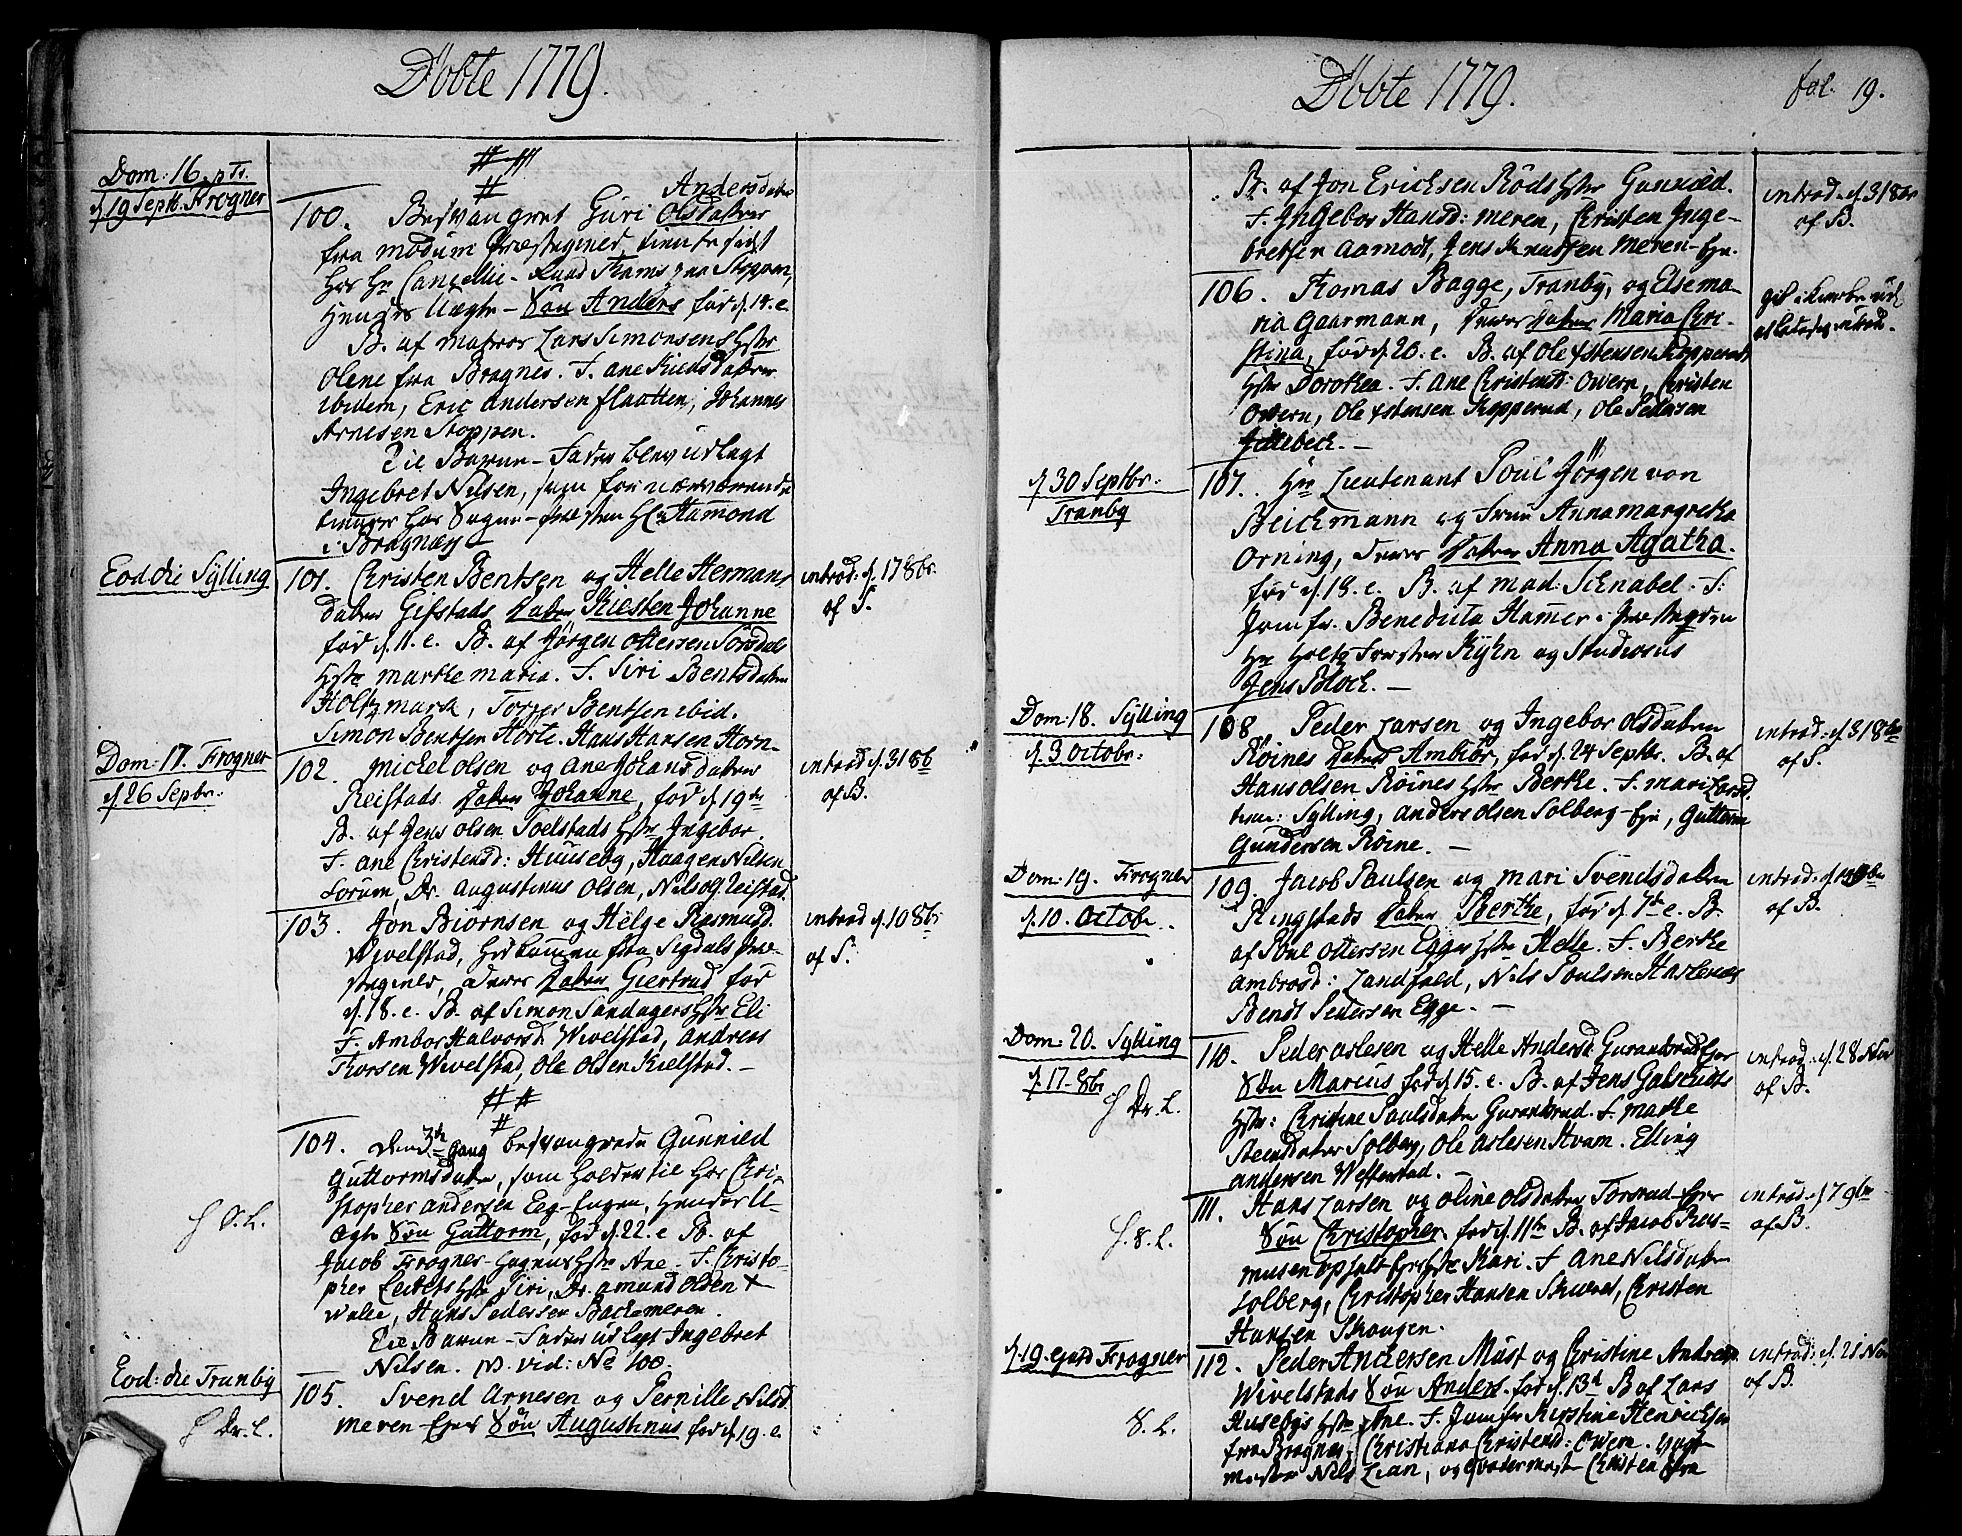 Döbte 1779.
Dom: 16. p Tr.
d 19 Septb. Frogner
100. Besvangret Guri Olsdatter
Andersdatter
fra Modum Præstegield, tiente sidst
hos Hr Cancellie-Raad Thams paa Stoppen,
Hendes Uægte-Sön Anders föd d. 14. e.
B. af Matros Lars Simonsens Hstr
Olene fra Bragnes. F. Ane Nielsdatter
ibidem, Eric Andersen Flaatten, Johannes
Arnesen Stoppen.
Til Barne-Fader blev udlagt
Ingebret Nilsen, som for nærværende
tienner hos Sogne-Præsten Hr Hamond
i Bragnæs
Eod die Sylling
101. Christen Bentsen og Helle Hermans
datter Gifstads Datter Kiersten Johanne
föd d. 11. e. B. af Jörgen Ottersen Sörsdals
Hstr Marthe Maria. F. Siri Bentsdatter
Holtzmark, Torger Bentsen ibid.
Simon Bentsen Hörte. Hans Hansen Horn-
introd: d. 17 8br.
af S.
Dom: 17. Frogner
d 26 Sepbr.
102. Mickel Olsen og Ane Johansdatter
Reistads Datter Johanne, föd d 19de
B. af Jens Olsen Toelstads Hstr Ingebor.
F. Ane Christensd: Huuseby, Haagen Nilsen
Sorum, Dr. Augustinus Olsen, Nils Ol: Reistad.
introd d. 31 8b
af B.
103. Jon Biörnsen og Helge Rasmusd.
Wivelstad, hid kommen fra Sigdals Præ-
stegield, Deres Datter Giertrud föd
d. 18. e. B. af Simon Sandagers Hstr Eli
F. Ambor Halvorsd. Wivelstad, Andreas
Thorsen Wivelstad, Ole Olsen Kielstad. -
introd d. 10 8br
af S.
104. Den 3de Gang besvangrede Gunnild
Guttormsdatter, som holder til hos Chri-
stopher Andersen Eeg-Engen, Hendes U-
ægte Sön Guttorm, föd d. 22. e B. af
Jacob Frogner-Hagens Hstr Ane. F. Christo-
pher Leirets Hstr Siri, Dr. Amund Olsen
Walle, Hans Pedersen Backemeren.
Til Barne-Fader udlagt Ingebret
Nilsen. NB. vid: No 100.
S. L.
Eod: die Tranby
105. Svend Arnesen og Pernille Nilsd.
Meren Eyes Sön Augustinus föd d 19. e.
Dr. L.
Döbte 1779.
fol. 19.
B. af Jon Ericksen Röds Hstr Gunnild.
F. Ingebor Hansd: Meren, Christen Inge-
bretsen Aamodt, Jens Knudsen Meren-Eye.
introd. d. 31 8br
af B.
106. Thomas Bagge, Tranby, og Else Ma-
ria Gaarmann, Deres Datter Maria Chri-
stina, föd d. 20. e. B. af Ole Stensen Kopperuds
Hstr Dorothea. F. Ane Christensd: Owern, Christen
Owern, Ole Stensen Kopperud, Ole Pedersen
Gillebeck. -
gik i Kirke uden
at lade sig introd.
d 30 Septbr.
Tranby
107. Hr Lieutenant Poul Jörgen von
Beichmann og Frue Anna Margretha
Orning, Deres Datter Anna Agatha.
föd d. 18. e. B. af Mad: Schnabel. F.
Jomfr. Benedicta Hamer i Præstegaarden
Hr Holtz Forster Kyhn og Studiosus
Jens Block. -
Dom: 18. Sylling
d. 3 Octobr:
108 Peder Larsen og Ingebor Olsdatter
Röines Datter Ambiör, föd d. 24 Septbr. B. af
Hans Olsen Röines Hstr Berthe. F. Mari Larsd.
Sylling, Anders Olsen Solberg-Eye, Guttorm
Gundersen Röine. -
introd: d. 31 8br
af S.
Dom: 19. Frogner
d. 10. Octobr.
109. Jacob Paulsen og Mari Svendsdatter
Ringstads Datter Berthe, föd d. 7de e. B.
af Poul Ottersen Egges Hstr Helle. F. Berthe
Ambrosd: Landfald, Nils Poulsen Haslenæs
Bendt Pedersen Egge. -
introd: d.
af B.
Dom: 20. Sylling
d. 17 8br
110. Peder Aslesen og Helle Andersd. Guranrud Eyes
Sön Marius föd d 15. e. B. af Jens Galskuds
Hstr: Christine Paulsdatter Guranrud. F. Marthe
Steensdatter Solberg, Ole Aslesen Hvam. Elling
Andersen Wefferstad.
Dr. L.
introd. d. 28 Nov
af B.
111. Hans Larsen og Oline Olsdatter Torsrud-Eyes
Sön Christopher föd d. 11te B. af Jacob Ras-
musen Opsalt Eyes Hstr Kari. F Ane Nilsdatter
Solberg, Christopher Hansen Skueret, Christen
Hansen Skougen.
S. L.
introd. d 7 9br
af B.
d. 19. ejusd Frogner
112. Peder Anckersen Must og Christine Andersd.
Wivelstads Sön Anders föd d. 13d B af Lars
Husebyes Hstr Ane. F. Jomfr Kirstine Henrichsen
fra Bragnes, Christiana Christensd: Owern. Vagt-
mester Nils Lian, og Qvartermest Christen fra
S. L.
introd: d. 21 Nov
af B.